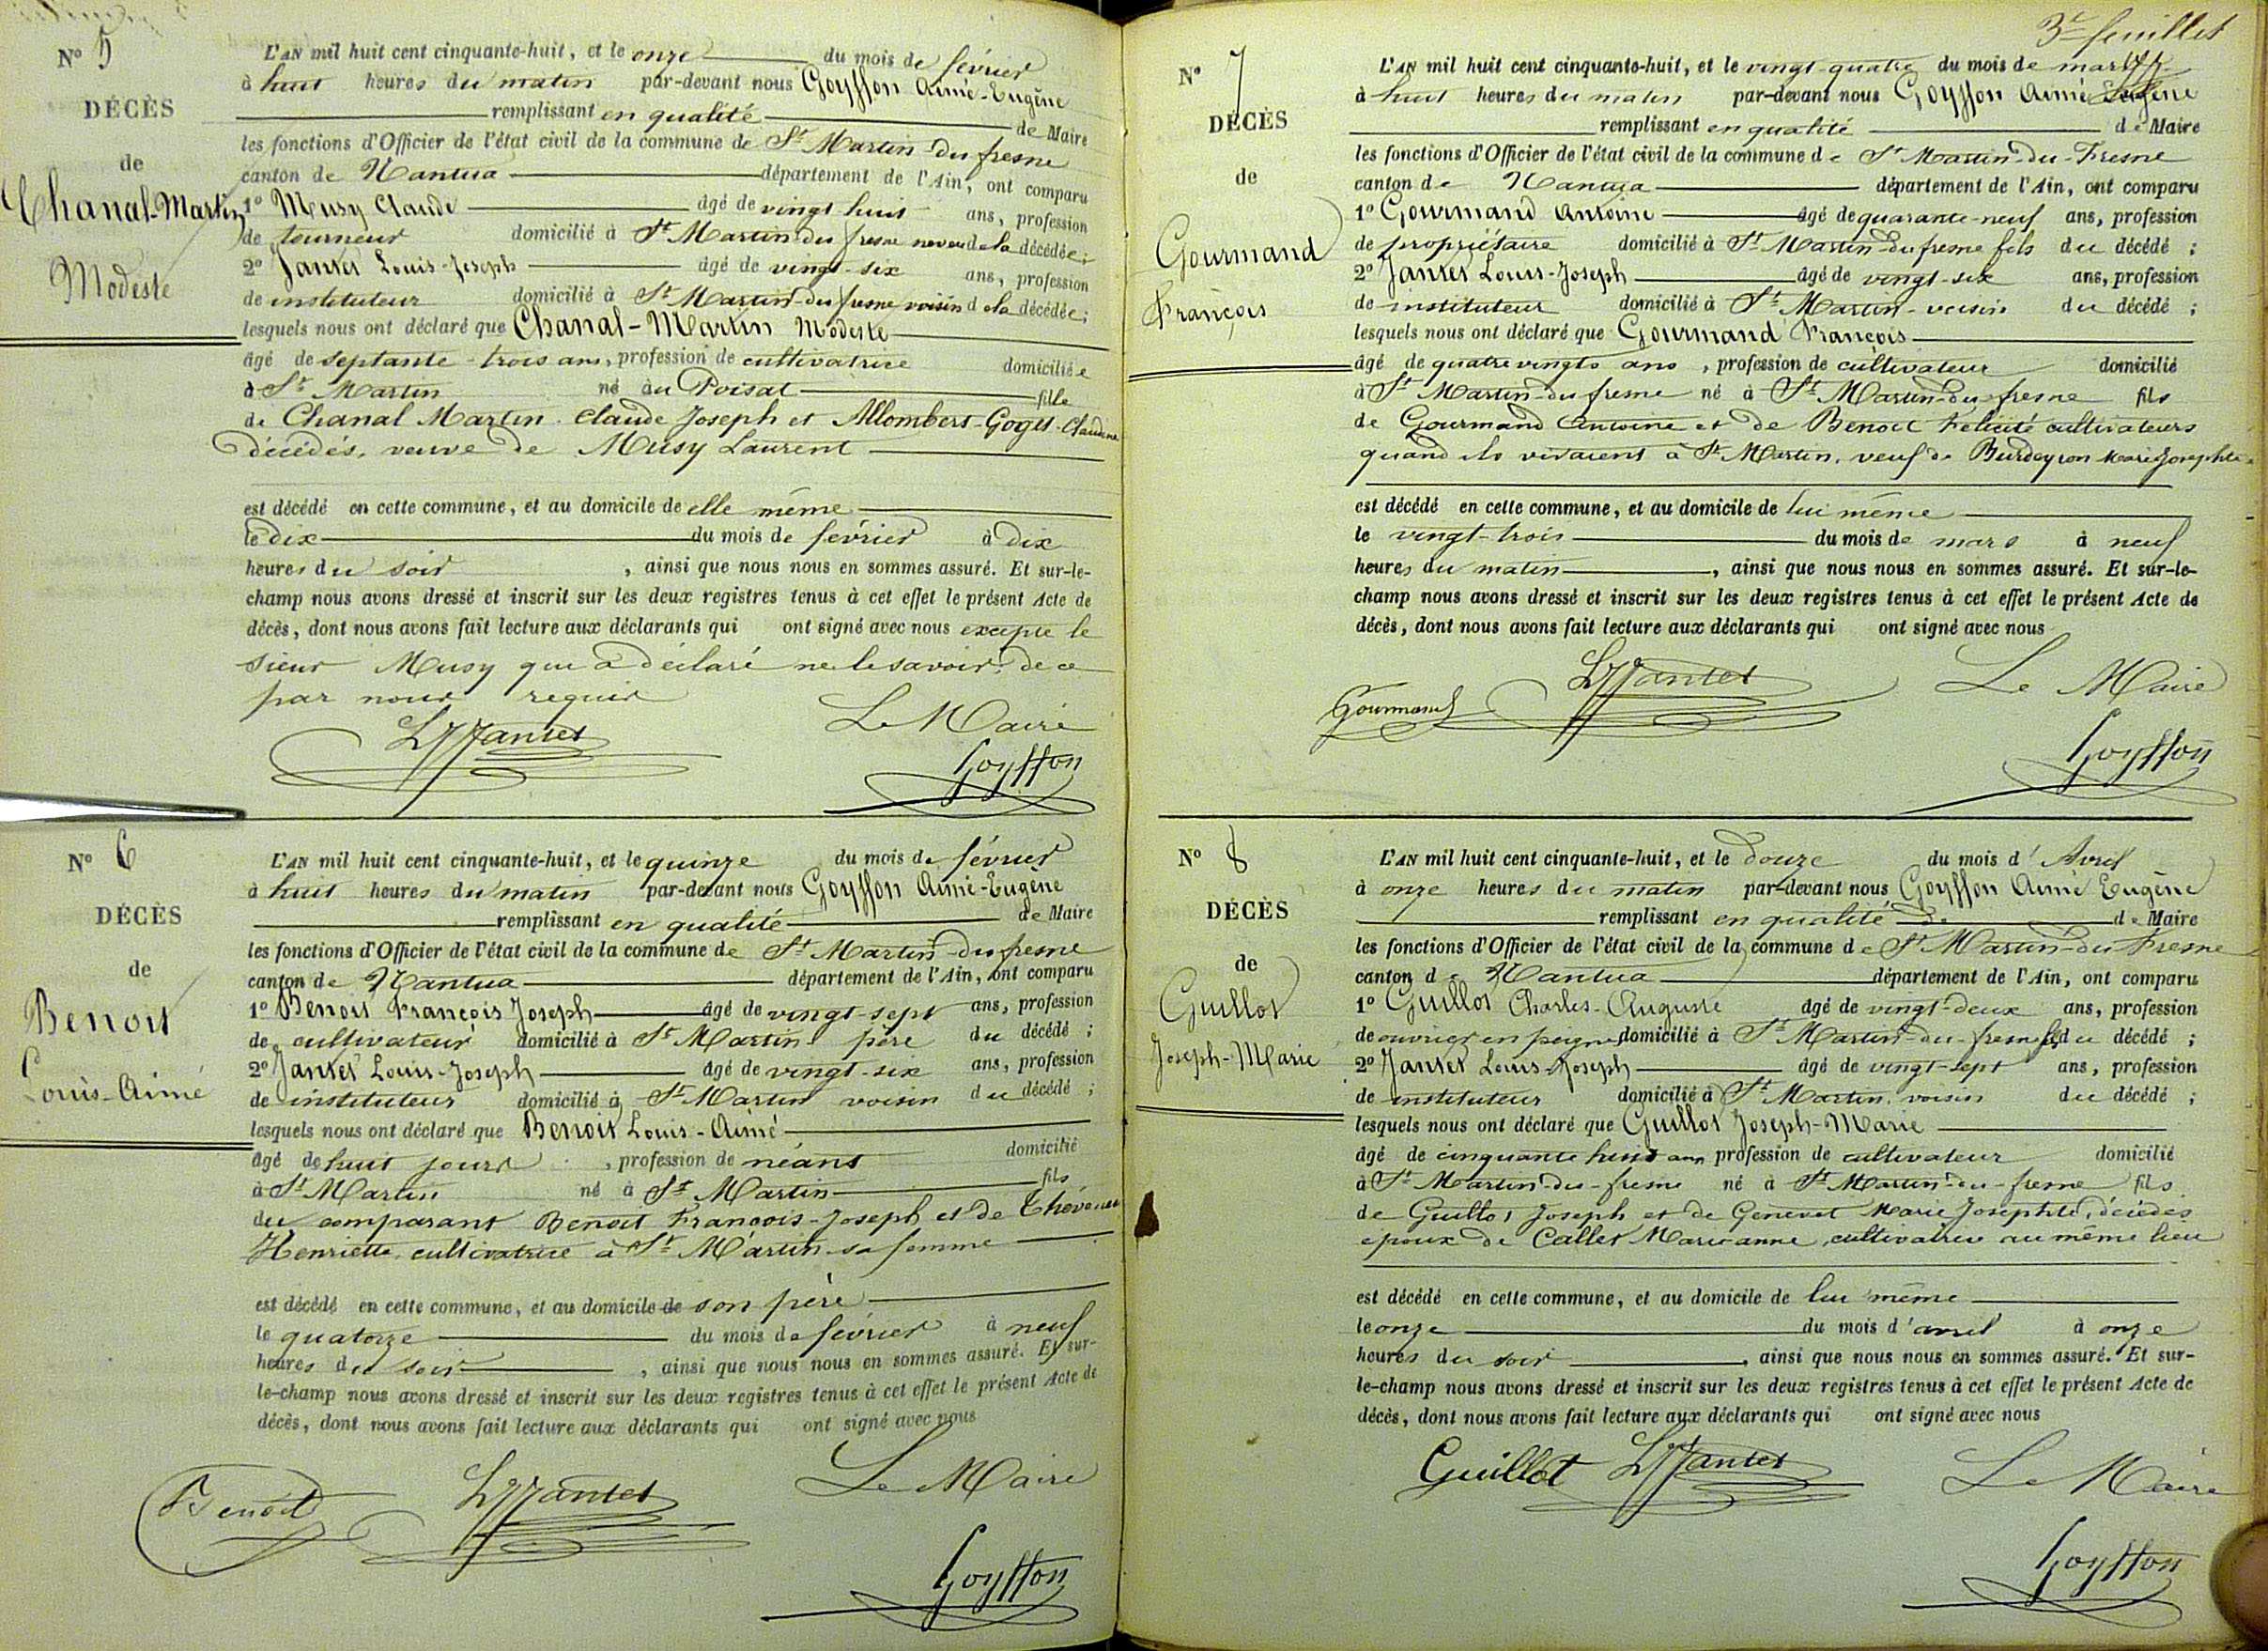 N° 5
DÉCÈS
de
Chanal-Martin
Modeste
L'AN mil huit cent cinquante-huit, et le onze du mois de février
à huit heures du matin par-devant nous Goyffon Aimé-Eugène
remplissant en qualité de Maire
les fonctions d'Officier de l'état civil de la commune de St Martin-du fresne
canton de Nantua département de l'Ain, ont comparu
1° Musy Claude âgé de vingt huit ans, profession
de tourneur domicilié à St Martin-du fresne neveu de la décédée;
2° Jantet Louis-Joseph âgé de vingt-six ans, profession
de instituteur domicilié à St Martin-du fresne voisin d ela décédée;
lesquels nous ont déclaré que Chanal-Martin Modeste
âgé de septante-trois ans, profession de cultivatrice domiciliée
à St Martin né au Poisat fille
de Chanal Martin Claude Joseph et Allombert-Goget Claudine
décédés, veuve de Musy Laurent
est décédé en cette commune, et au domicile de elle même
le dix du mois de février à dix
heures du soir, ainsi que nous nous en sommes assuré. Et sur-le-
champ nous avons dressé et inscrit sur les deux registres tenus à cet effet le présent Acte de
décès, dont nous avons fait lecture aux déclarants qui ont signé avec nous excepté le
sieur Musy qui a déclaré ne le savoir, de ce
par nous requis
LJJantet Le Maire
Goyffon
N° 6
DÉCÈS
de
Benoit
Louis-Aimé
L'AN mil huit cent cinquante-huit, et le quinze du mois de février
à huit heures du matin par-devant nous Goyffon Aimé-Eugène
remplissant en qualité de Maire
les fonctions d'Officier de l'état civil de la commune de St Martin-du fresne
canton de Nantua département de l'Ain, ont comparu
1° Benoit François Joseph âgé de vingt-sept ans, profession
de cultivateur domicilié à St Martin père du décédé;
2° Jantet Louis-Joseph âgé de vingt-six ans, profession
de instituteur domicilié à St Martin voisin du décédé;
lesquels nous ont déclaré que Benoit Louis-Aimé
âgé de huit jours, profession de néant domicilié
à St Martin né à St Martin fils
du comparant Benoit François-Joseph et de
Henriette cultivatrice à St Martin sa femme
est décédé en cette commune, et au domicile de son père
le quatorze du mois de février à neuf
heures du soir, ainsi que nous nous en sommes assuré. Et sur-
le-champ nous avons dressé et inscrit sur les deux registres tenus à cet effet le présent Acte de
décès, dont nous avons fait lecture aux déclarants qui ont signé avec nous
Benoit LJJantet Le Maire
Goyffon
3e feuillet
N° 7
DÉCÈS
de
Gourmand
François
L'AN mil huit cent cinquante-huit, et le vingt-quatre du mois de mars
à huit heures du matin par-devant nous Goyffon Aimé Eugène
remplissant en qualité de Maire
les fonctions d'Officier de l'état civil de la commune de St Martin-du-Fresne
canton de Nantua département de l'Ain, ont comparu
1° Gourmand Antoine âgé de quarante-neuf ans, profession
de propriétaire domicilié à St Martin-du fresne fils du décédé;
2° Jantet Louis-Joseph âgé de vingt-six ans, profession
de instituteur domicilié à St Martin-voisin du décédé;
lesquels nous ont déclaré que Gourmand François
âgé de quatre vingts ans, profession de cultivateur domicilié
à St Martin-du fresne né à St Martin-du-fresne fils
de Gourmand Antoine et de Benoit Félicité cultivateurs
quand ils vivaient à St Martin, veuf de Burdeyron Marie Josephte
est décédé en cette commune, et au domicile de lui même
le vingt-trois du mois de mars à neuf
heures du matin, ainsi que nous nous en sommes assuré. Et sur-le-
champ nous avons dressé et inscrit sur les deux registres tenus à cet effet le présent Acte de
décès, dont nous avons fait lecture aux déclarants qui ont signé avec nous
Gourmand LJJantet Le Maire
Goyffon
N° 8
DÉCÈS
de
Guillot
Joseph-Marie
L'AN mil huit cent cinquante-huit, et le douze du mois d'Avril
à onze heures du matin par-devant nous Goyffon Aimé Eugène
remplissant en qualité de de Maire
les fonctions d'Officier de l'état civil de la commune de St Martin-du Fresne
canton de Nantua département de l'Ain, ont comparu
1° Guillot Charles-Auguste âgé de vingt-deux ans, profession
de ouvrier en peignes domicilié à St Martin-du-fresne fils du décédé;
2° Jantet Louis-Joseph âgé de vingt-sept ans, profession
de instituteur domicilié à St Martin, voisin du décédé;
lesquels nous ont déclaré que Guillot Joseph-Marie
âgé de cinquante huit ans profession de cultivateur domicilié
à St Martin-du-fresne né à St Martin-du-fresne fils
de Guillot Joseph et de Genevet Marie Josephte, décédés
époux de Callet Marie anne, cultivatrice au même lieu
est décédé en cette commune, et au domicile de lui même
le onze du mois d'avril à onze
heures du soir, ainsi que nous nous en sommes assuré. Et sur-
le-champ nous avons dressé et inscrit sur les deux registres tenus à cet effet le présent Acte de
décès, dont nous avons fait lecture aux déclarants qui ont signé avec nous
Guillot LJJantet Le Maire
Goyffon